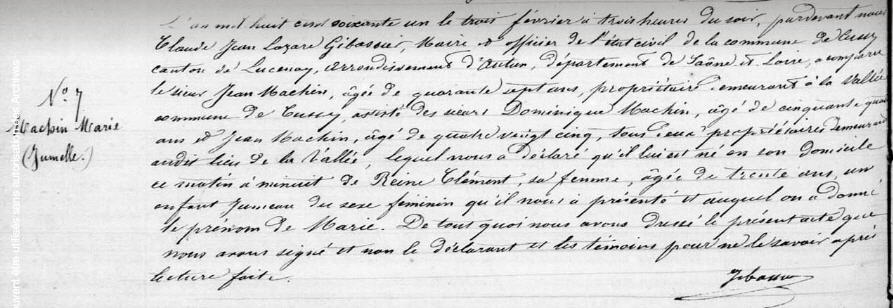 L'an mil huit cent soixante un le trois février à trois heures du soir, pardevant nous
Claude Jean Lazare Gibassier, Maire et officier de l'état civil de la commune de Cussy
canton de Lucenay, arrondissement d'Autun, département de Saône et Loire, a comparu
le sieur Jean Machin, âgé de quarante sept ans, propriétaire demeurant à la Vallée
commune de Cussy, assisté des sieurs Dominique Machin, âgé de cinquante quatre
ans et Jean Machin, âgé de quatre vingt cinq, tous deux propriétaires demeurant
audit lieu de la Vallée, lequel nous a déclaré qu'il lui est né en son domicile
ce matin à minuit de Reine Clément, sa femme, âgée de trente ans, un
enfant jumeau du sexe féminin qu'il nous a présenté et auquel on a donné
le prénom de Marie. De tout quoi nous avons dressé le présent acte que
nous avons signé et non le déclarant et les témoins pour ne le savoir après
lecture faite.
N° 7
Machin Marie
(Jumelle.)